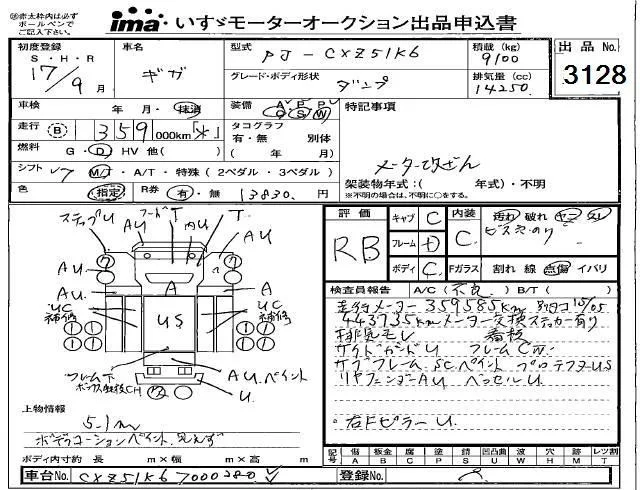 ⑩赤太枠内は必ず
ボールペンで
ご記入下さい。
ima いすゞモーターオークション出品申込書
初度登録 S・H・R 17/9 月
車名 ギガ
型式 PJ-CXZ51K6
グレード・ボディ形状 ダンプ
積載(kg) 9100
排気量(cc) 14250
出品 No. 3128
車検 年 月・抹消
装備 A P P C S W
特記事項
走行 B 359 000km 「＊」
タコグラフ 有・無 別体 ( 年 / 月)
メーター改ざん
燃料 G・D HV 他( )
シフト 7 M/T・A/T・特殊(2ペダル・3ペダル)
架装物年式:( 年式)・不明
※不明の場合は、不明に○をする。
色 指定 R券 有・無 13830. 円
評価 RB
キャブ C
フレーム D
ボディ C
内装 C
汚れ 破れ ヤニ
ビス穴 のり
Fガラス 割れ 線 点傷 イバリ
ステップU フードT T.
AU AU AU
AU A A AU.
UC 補修 US UC 補修
フレーム下
AU.ペイント
U.
検査員報告 A/C(不良) B/T( )
走行メーター 359585km
443735kmメーター交換ステッカー有り
排気モレ 看板
サイドガードU フレームCW.
サブフレームSCペイント プロテクタUS
リヤフェンダーAU ベッセルU
右FピラーU.
上物情報
5.1m
ボデーコーションペイント見えず
ボディ内寸約 長 m×幅 m×高 m
記号 傷 A 板金 B 腐 C 塗 P 錆 S 凹凸曲 U 波 W 穴 H 跡 M レツ割 T
車台No. CXZ51K6 7000280
登録No.